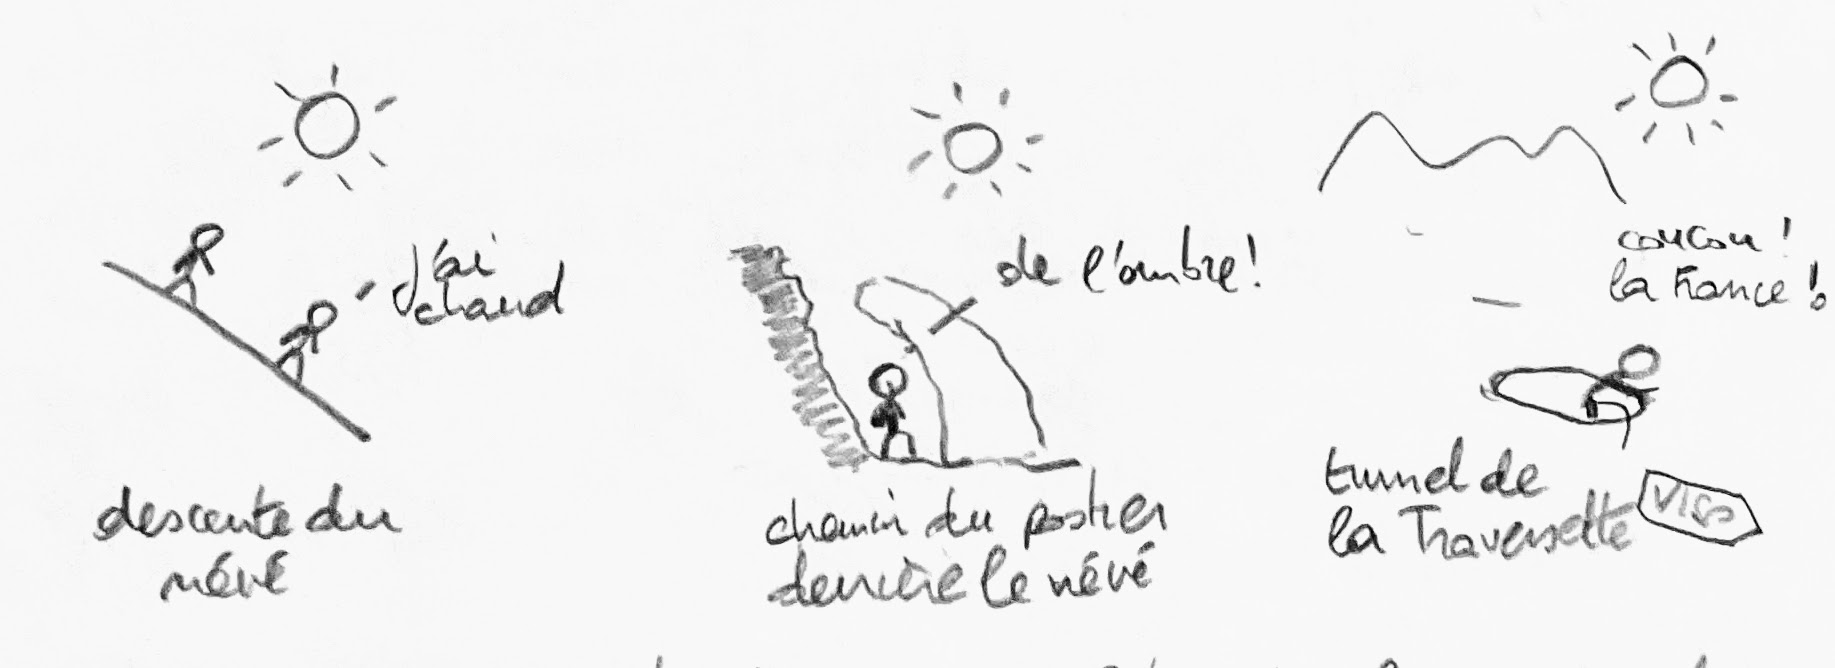 J'ai
chaud
descente du
névé
de l'ombre!
chemin du postier
derrière le névé
coucou!
la France!
tunnel de
la Traversette
VISO